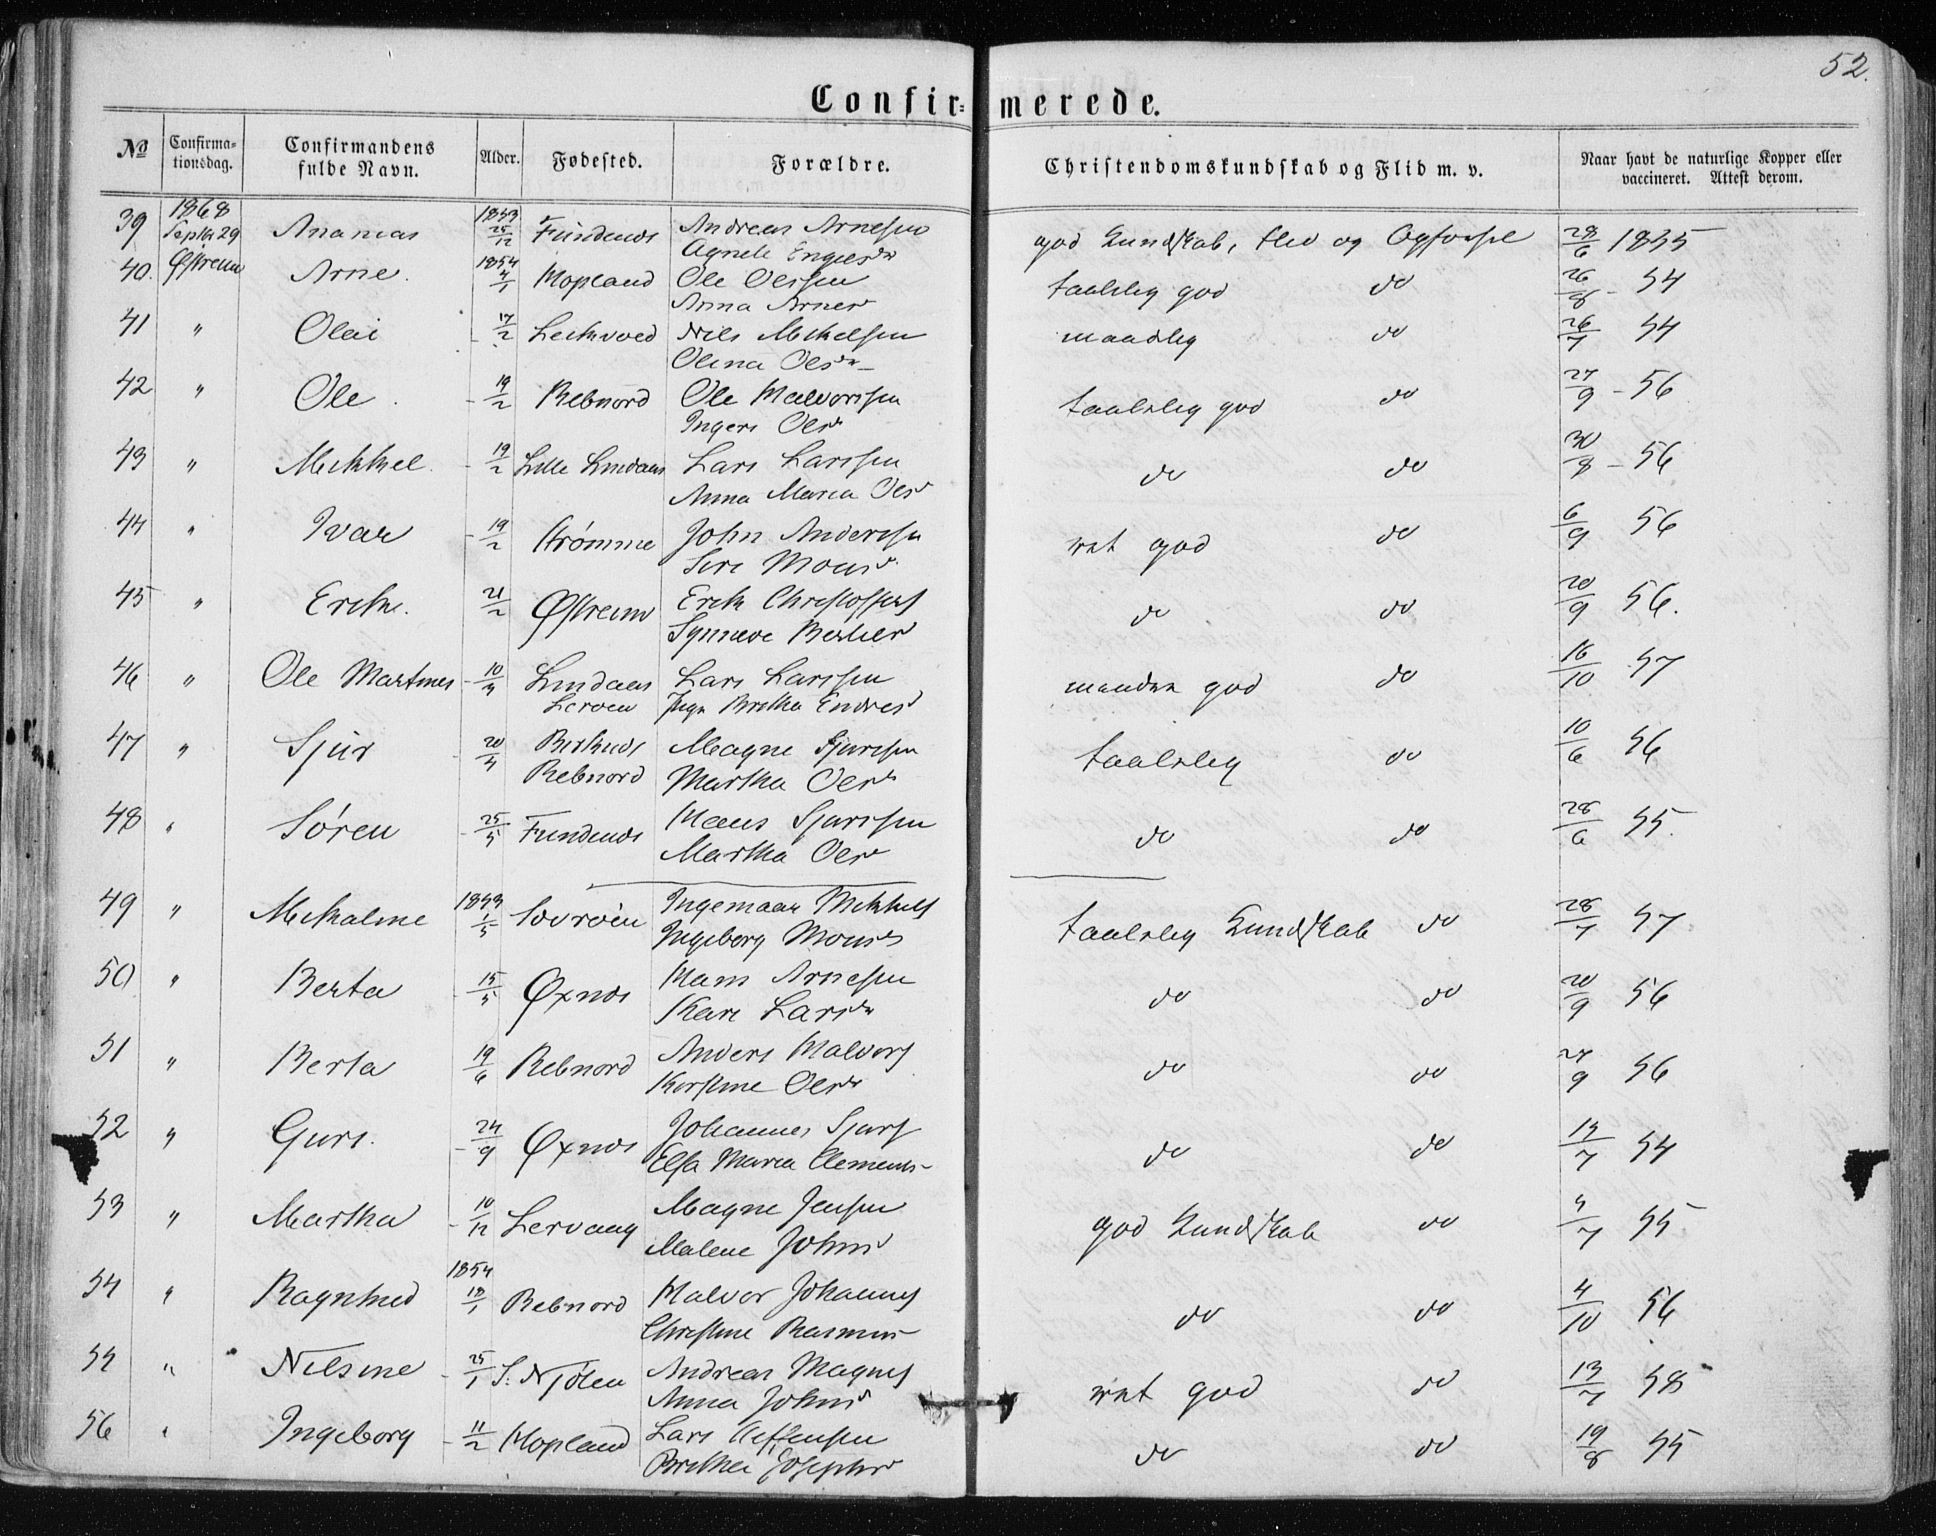 52.
Confir= merede.
№ Confirma=tionsdag. Confirmandens fulde Navn. Alder. Fødested. Forældre. Christendomskundskab og Flid m. v. Naar havt de naturlige Kopper eller vaccineret. Attest derom.
39 1868 Septbr 29 Ananias 1853 25/12 Andreas Arnesen god Kundskab, Flid og Opførsel 28/6 1855
Agnete
40. Østreim Arne. 1854 4/1 Hopland Ole Olessen taalelig god do 26/8 - 54
Anna Arnesd
41 " Olai - 17/2 Nils Mikkelsen maadelig do 26/7 54
Olina Olesdr
42 " Ole - 19/2 Rebnord Ole Halvorssen taaleleg god do 27/9 - 56
Ingeri Olesd
43 " Mikkel - 19/2 Lille Lindaas Lars Larssen do do 30/8 - 56
Anna Maria Olesd
44 " Ivar - 19/2 Strømme John Anderssen ret god do 6/9 56
Siri Monsd
45 " Erik. 21/2 Østreim Erik Christoffers do do 20/9 56.
Synneve
46 " Ole Martines - 10/4 Lindaas Lars Larssen god do 16/10 57
Brithe Endresd
47 " Sjur - 20/4 Magne Sjurssen taaleleg do 10/6 56
Rebnord Martha Olesd
48 " Søren - 25/5 Hans Sjurssen do do 28/6 55.
Martha Olesd
49 " Mikaline 1853 1/5 Ingemaar Mikkels taaleleg Kundskab do 28/7 57
Ingeborg Monsd
50 " Berta - 15/5 Øxnes Hans Arnesen do do 20/9 56
Kari Larsdr
51 " Berta 19/6 Rebnord Anders Halvors do do 27/9 56
Kirstine Olesd
52 " Guri. - 24/9 Øxnes Johannes Sjurs do do 13/7 54
Elsa Maria Clements-
53 " Martha - 10/12 Lervaag Magne Jensen god Kundskab do 4/7 55
Malene Johnsd
54 " Ragnhild 1854 18/1 Rebnord Halvor Johannes do do 4/10 56
Christine Rasmus-
55 " Nilsine - 25/1 Andreas Magnes ret god do 13/7 58
Anna Johnsd
56 " Ingeborg - 11/2 Hopland Lars do do 19/8 55
Brithe Josephsd